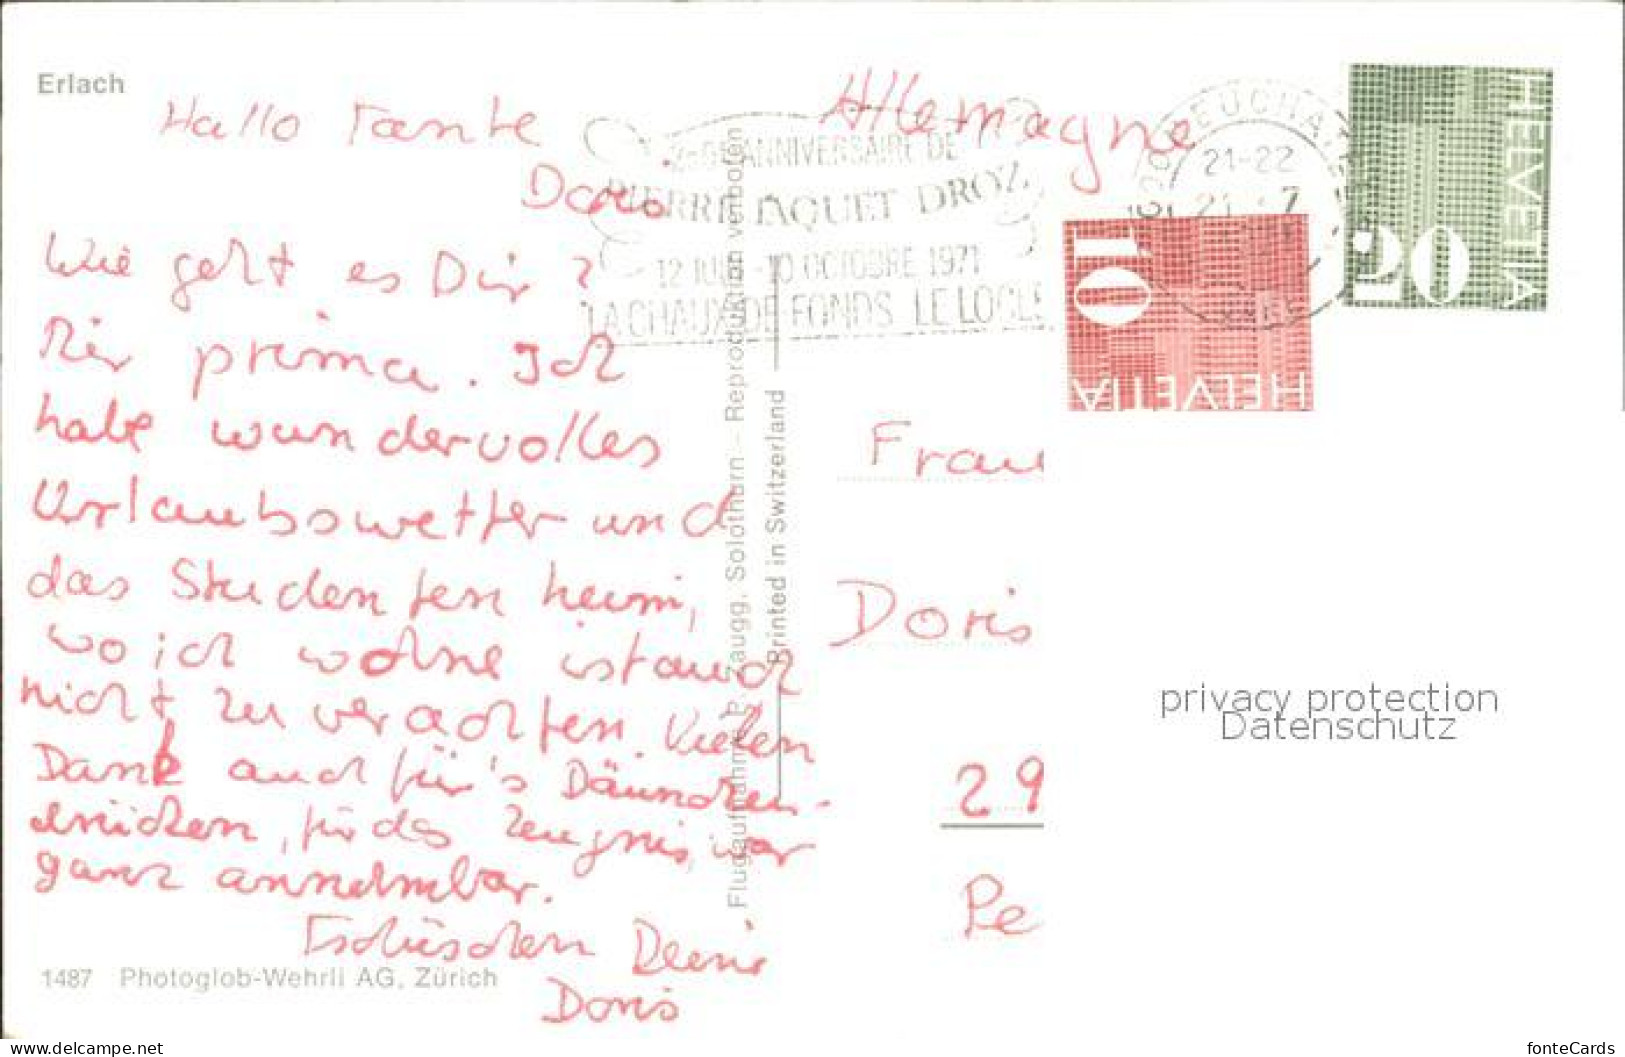 Erlach
Hallo Tante
Doris
Wie geht es Dir?
Mir prima. Ich
habe wundervolles
Urlaubswetter und
das Studentenheim,
wo ich wohne ist auch
nicht zu verachten. Vielen
Dank auch für's Däumchen-
drücken, für das Zeugnis, war
ganz annehmbar.
Tschüschen Deine
Doris
1487 Photoglob-Wehrli AG, Zürich
Flugaufnahme P. Zaugg, Solothurn – Reproduktion verboten
Printed in Switzerland
ANNIVERSAIRE DE
PIERRE JAQUET DROZ
12 JUIN -10 OCTOBRE 1971
LA CHAUX DE FONDS LE LOCLE
21-22
Allemagne
HELVETIA
20
10
HELVETIA
Frau
Doris
29
Pe
privacy protection
Datenschutz
https://www.delcampe.net/de
fonteCards